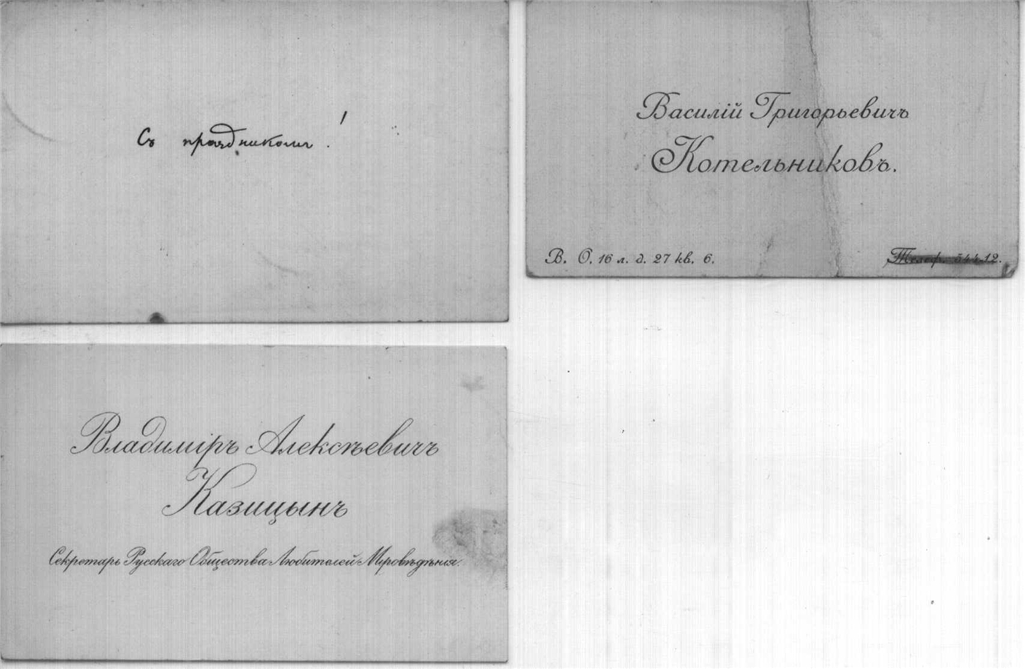 Съ праздникомъ!
Василій Григорьевичъ
Котельниковъ.
В. О. 16 л. д. 27 кв. 6.
Телеф. 544.12.
Владиміръ Алексѣевичъ
Казицынъ
Секретарь Русскаго Общества Любителей Міровѣдѣнія.